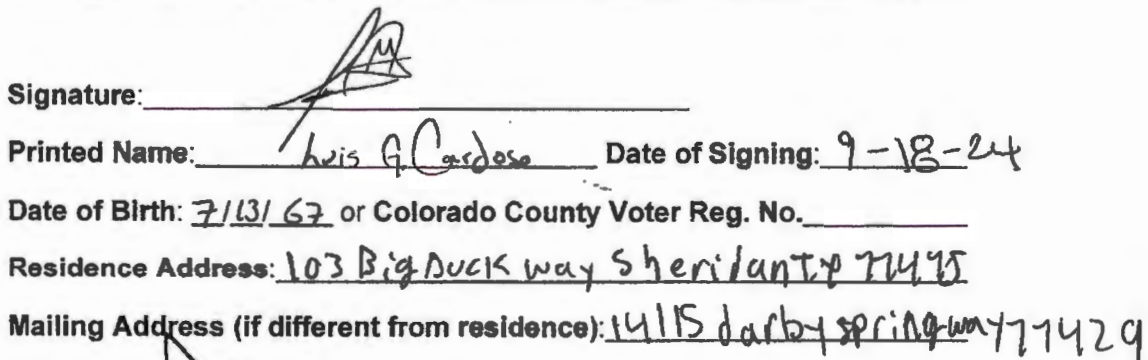 Signature:
Printed Name: Luis G. Cardoso Date of Signing: 9-18-24
Date of Birth: 7/13/67 or Colorado County Voter Reg. No.
Residence Address: 103 Big Duck way Sheridan TX 77475
Mailing Address (if different from residence): 14115 darby spring way 77429